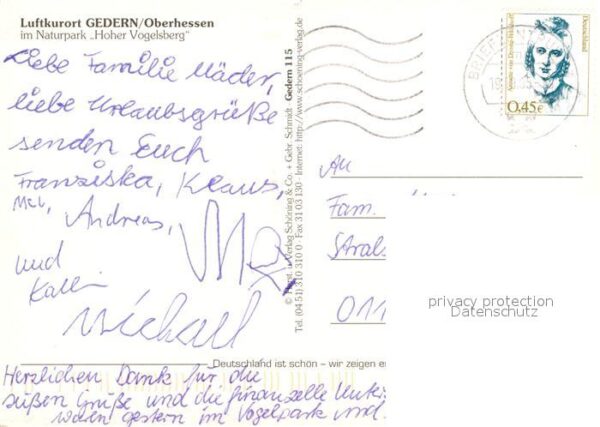 Luftkurort GEDERN/Oberhessen
im Naturpark „Hoher Vogelsberg"
Liebe Familie Mäder,
liebe Urlaubsgrüße
senden Euch
Franziska, Klaus,
Andreas,
und
Michael
Herzlichen Dank für die
süßen Grüße und die finanzelle
waren gestern im Vogelpark und
Gedern 115
© Kunst u. Verlag Schöning & Co. + Gebr. Schmidt
Tel. (04 51) 310 310 0 · Fax 31 03 130 · Internet: http://www.schoening-verlag.de
Deutschland ist schön – wir zeigen es
Deutschland
0,45€
An
Fam.
Strals
011
privacy protection
Datenschutz